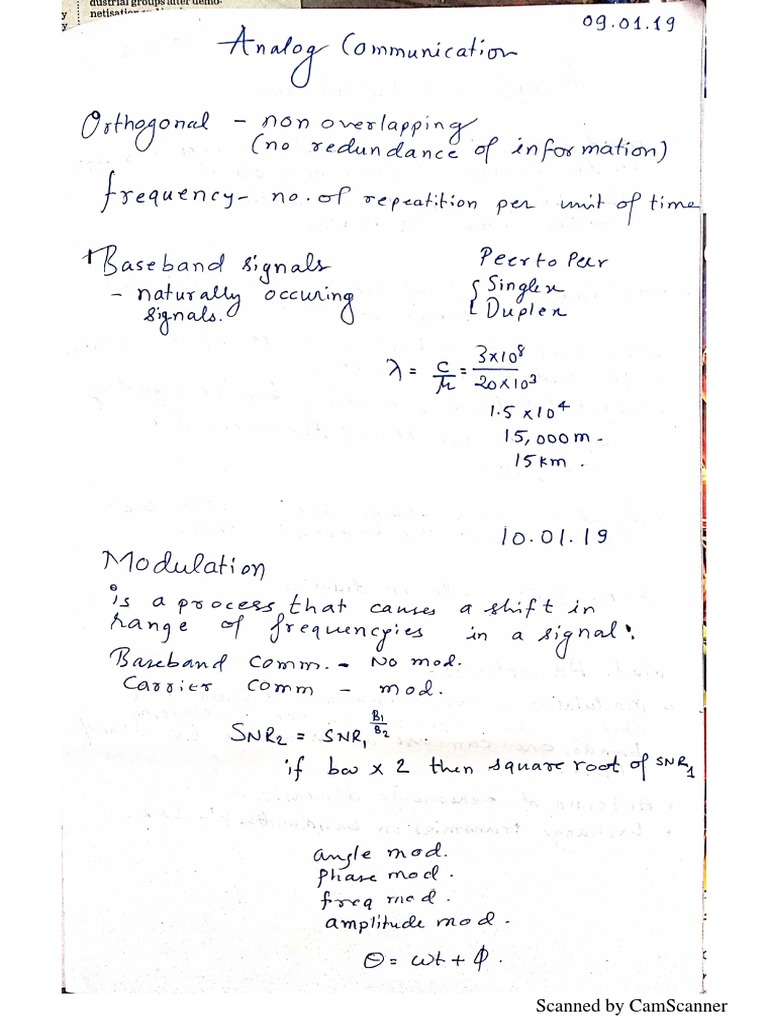 dustrial groups after demo-
netisation
y
y
09.01.19
Analog Communication
Orthogonal - non overlapping
(no redundance of information)
frequency - no. of repeatition per unit of time
Baseband signals
- naturally occuring
signals.
Peer to Peer
{ Singlex
Duplex
λ = c/μ = 3x10⁸/20x10³
1.5 x 10⁴
15,000m.
15km.
10.01.19
Modulation
is a process that causes a shift in
range of frequencyies in a signal.
Baseband comm. - No mod.
Carrier comm - mod.
SNR₂ = SNR₁^(B₁/B₂)
if bw x 2 then square root of SNR₁
angle mod.
phase mod.
freq mod.
amplitude mod.
θ = ωt + ϕ.
Scanned by CamScanner